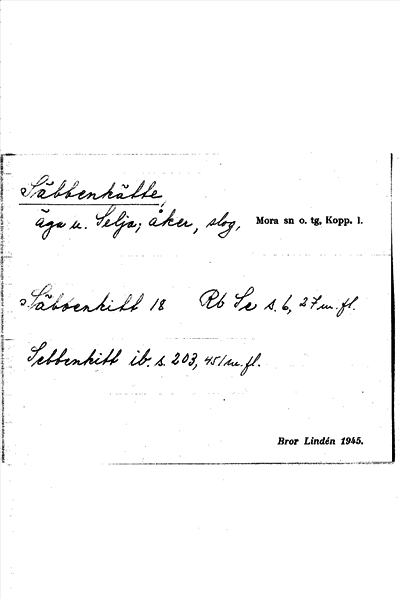 Säbbenkätte,
äga u. Selja; åker, slog, Mora sn o. tg, Kopp. l.
Säbbenkitt 18 Rb Se s. 6, 27 m. fl.
Sebbenkitt ib. s. 203, 451 m. fl.
Bror Lindén 1945.